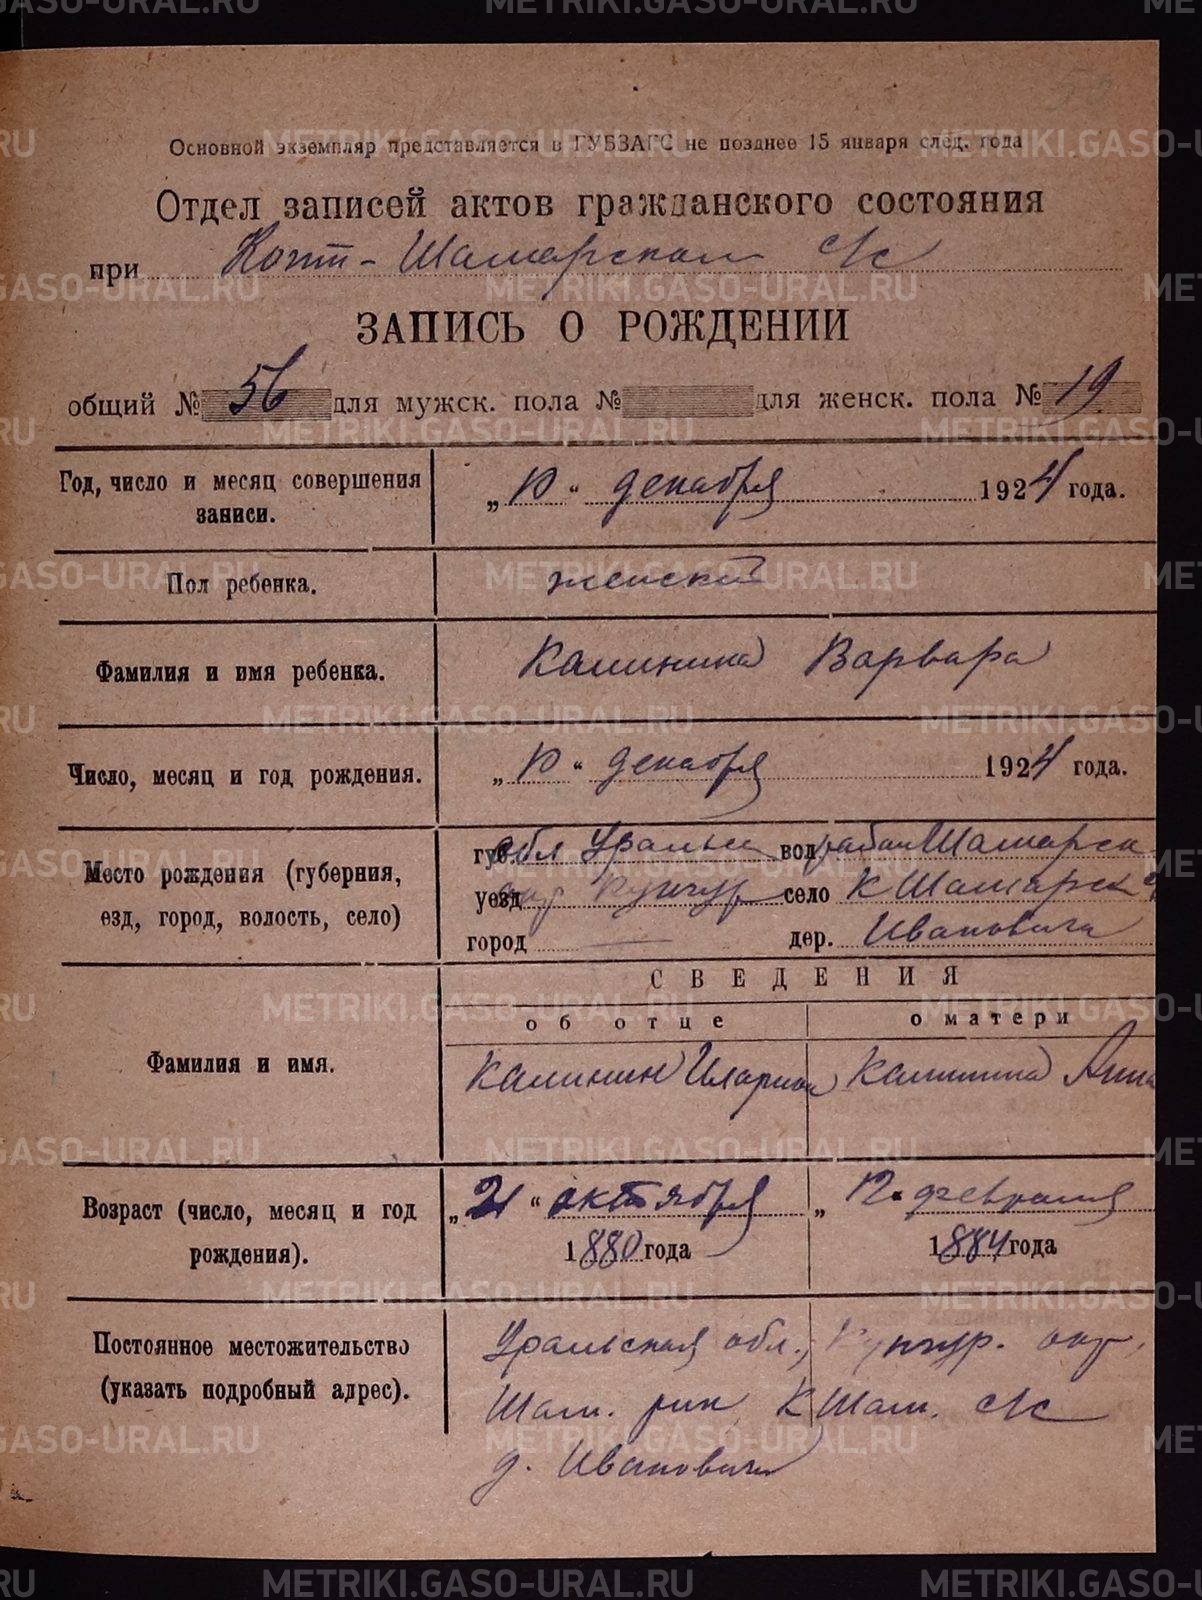 Основной экземпляр представляется в ГУБЗАГС не позднее 15 января след. года
Отдел записей актов гражданского состояния
при Копт-Шамарском с/с
ЗАПИСЬ О РОЖДЕНИИ
общий № 56 для мужск. пола № для женск. пола № 19
Год, число и месяц совершения записи.
„10“ декабря 1924 года.
Пол ребенка.
женский
Фамилия и имя ребенка.
Калинина Варвара
Число, месяц и год рождения.
„10“ декабря 1924 года.
Место рождения (губерния,
езд, город, волость, село)
губ обл Уральск вол район Шамарск
уезд окр Кунгур село К Шамарск
город — дер. Ивановича
СВЕДЕНИЯ
об отце
о матери
Фамилия и имя.
Калинин Иларион
Калинина Анна
Возраст (число, месяц и год
рождения).
„21“ октября
1880 года
„12“ февраля
1884 года
Постоянное местожительство
(указать подробный адрес).
Уральская обл., Кунгур. окр.
Шам. рик К Шам. с/с
д. Ивановича
METRIKI.GASO-URAL.RU